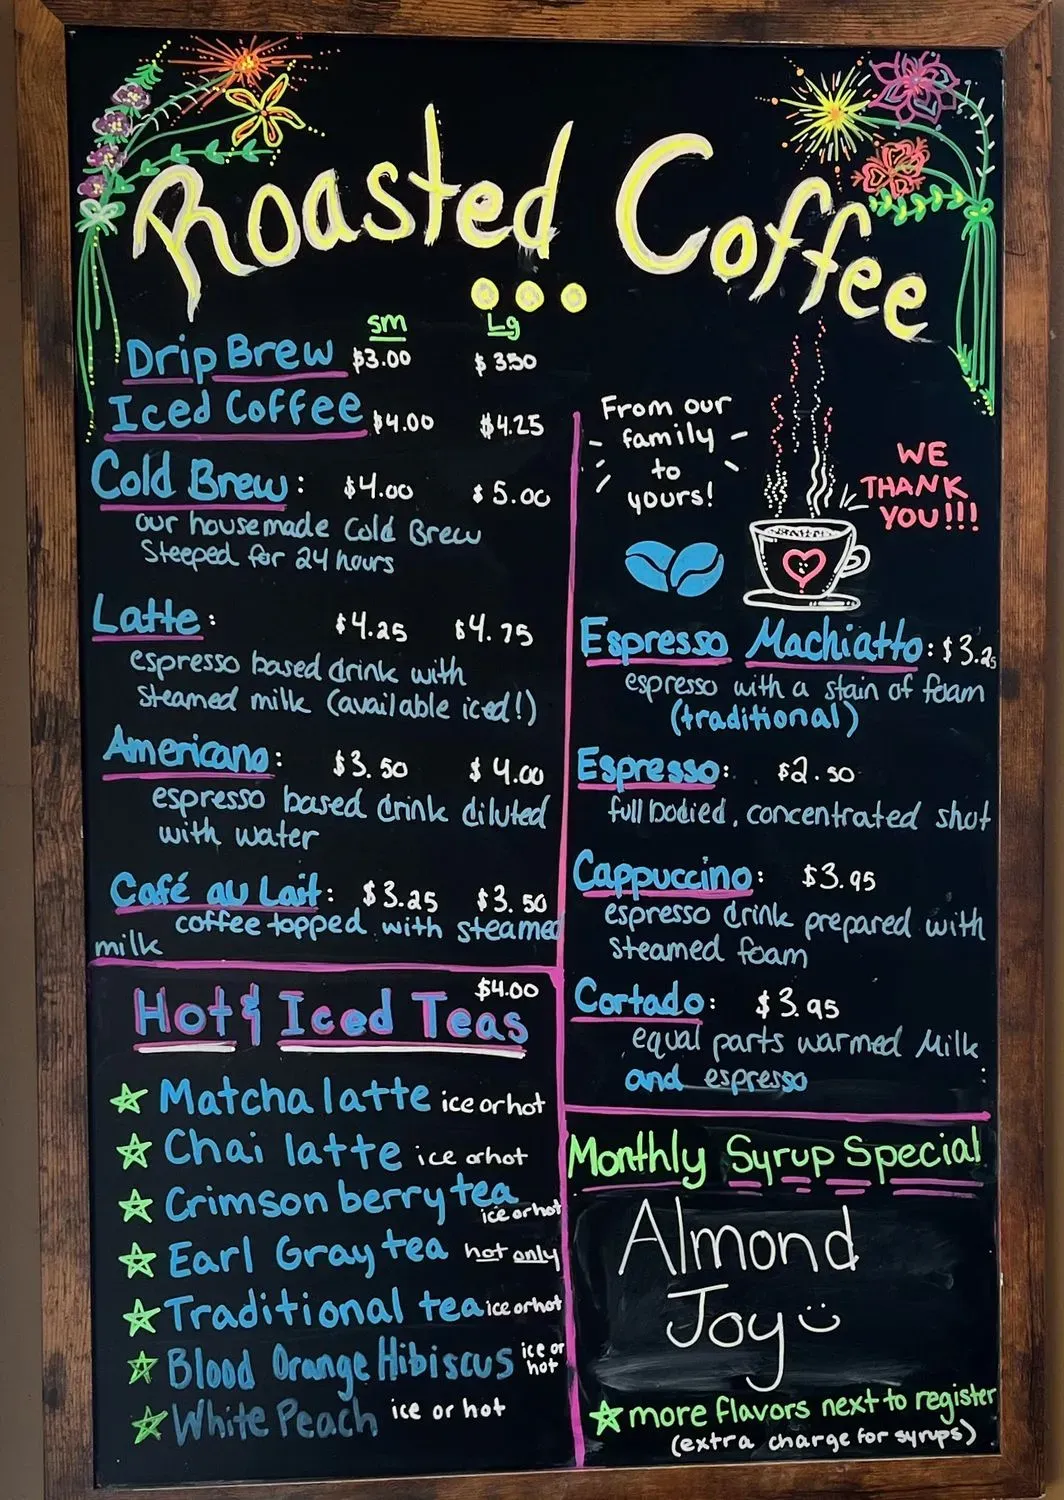 Roasted Coffee
...
sm Lg
Drip Brew $3.00 $3.50
Iced Coffee $4.00 $4.25
Cold Brew: $4.00 $5.00
our housemade Cold Brew
Steeped for 24 hours
Latte: $4.25 $4.75
espresso based drink with
steamed milk (available iced!)
Americano: $3.50 $4.00
espresso based drink diluted
with water
Café au Lait: $3.25 $3.50
coffee topped with steamed
milk
Hot & Iced Teas $4.00
Matcha latte ice or hot
Chai latte ice or hot
Crimson berry tea
ice or hot
Earl Gray tea hot only
Traditional tea ice or hot
Blood Orange Hibiscus ice or
hot
White Peach ice or hot
From our
family
to
yours!
WE
THANK
YOU!!!
Espresso Machiatto: $3.25
espresso with a stain of foam
(traditional)
Espresso: $2.50
full bodied, concentrated shot
Cappuccino: $3.95
espresso drink prepared with
steamed foam
Cortado: $3.95
equal parts warmed Milk
and espresso
Monthly Syrup Special
Almond
Joy
more flavors next to register
(extra charge for syrups)